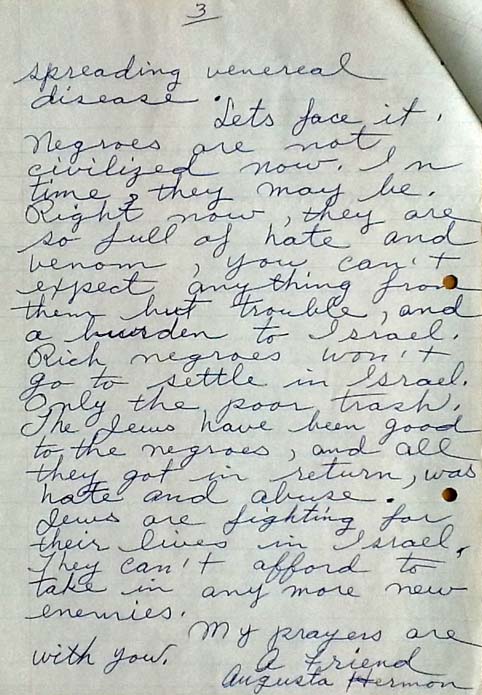 3
spreading venereal
disease.
Lets face it.
Negroes are not
civilized now. In
time, they may be.
Right now, they are
so full of hate and
venom, you can't
expect anything from
them but trouble, and
a burden to Israel.
Rich negroes won't
go to settle in Israel.
Only the poor trash.
The Jews have been good
to the negroes, and all
they got in return, was
hate and abuse.
Jews are fighting for
their lives in Israel.
They can't afford to
take in any more new
enemies.
My prayers are
with you.
A Friend
Augusta Hermon